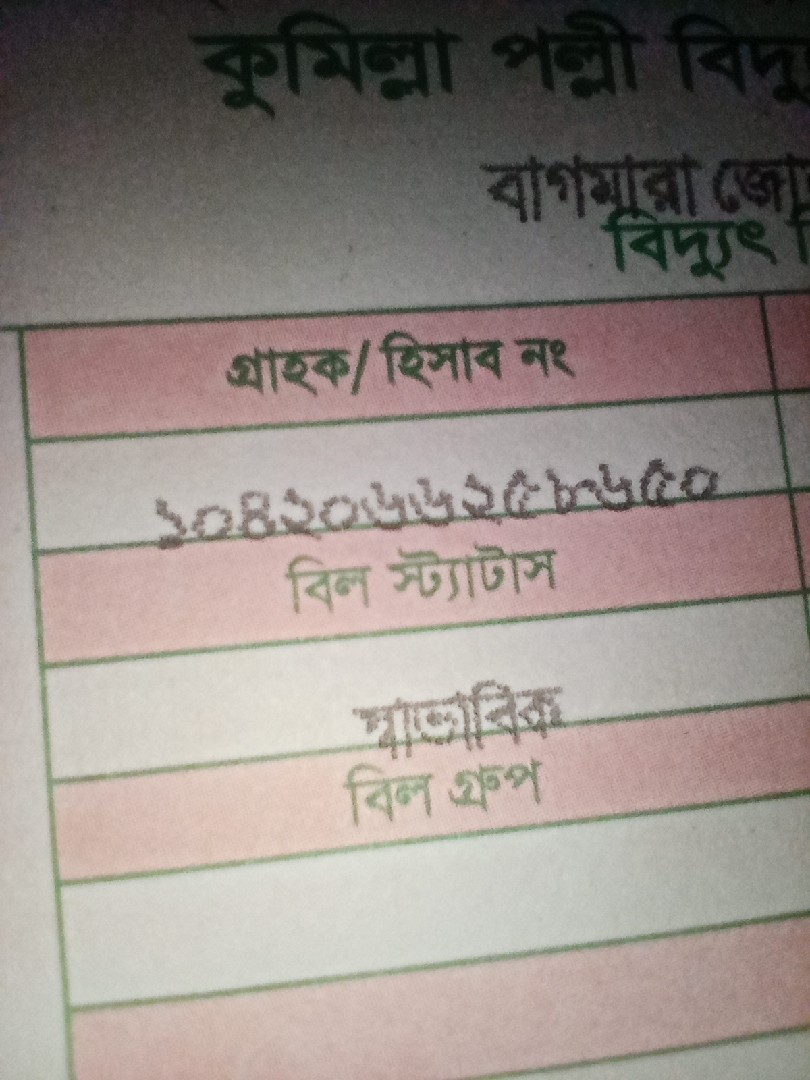 কুমিল্লা পল্লী
বাগমারা
বিদ্যুৎ
গ্রাহক/ হিসাব নং
১০৪২০৬৬২৫৮৬৫০
বিল স্ট্যাটাস
স্বাভাবিক
বিল গ্রুপ